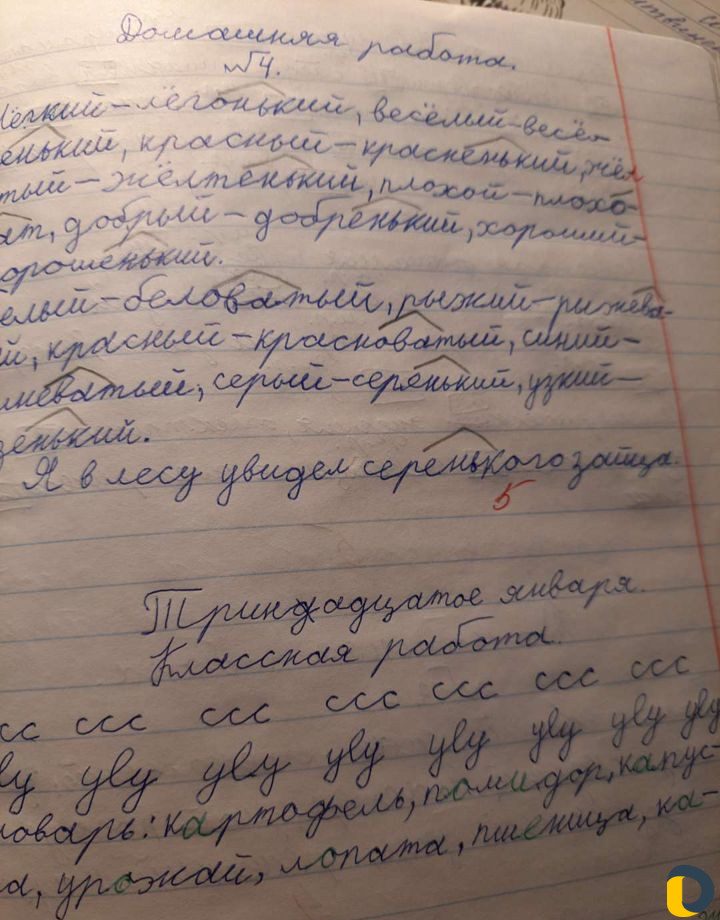 Домашняя работа.
№4.
Лёгкий-лёгонький, весёлый-весёл-
енький, красный-красненький, жёл
тый-жёлтенький, плохой-плохо-
ат, добрый-добренький, хороший-
орошенький.
елый-беловатый, рыжий-рижева-
ий, красный-красноватый, синий-
иневатый, серый-серянький, узкий-
зенький.
Я в лесу увидел серенького зайца.
5
Триндадцатое января.
Классная работа.
сс ссс ссс ссс ссс ссс ссс
ву уву уву уву уву уву уву уву
ловарь: картофель, помидор, капус-
а, урожай, лопата, пшеница, ка-